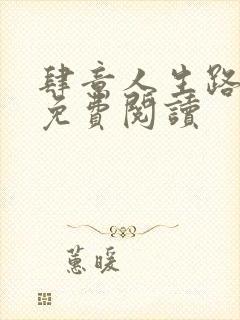 肆意人生路
免費閱讀
蕙暖